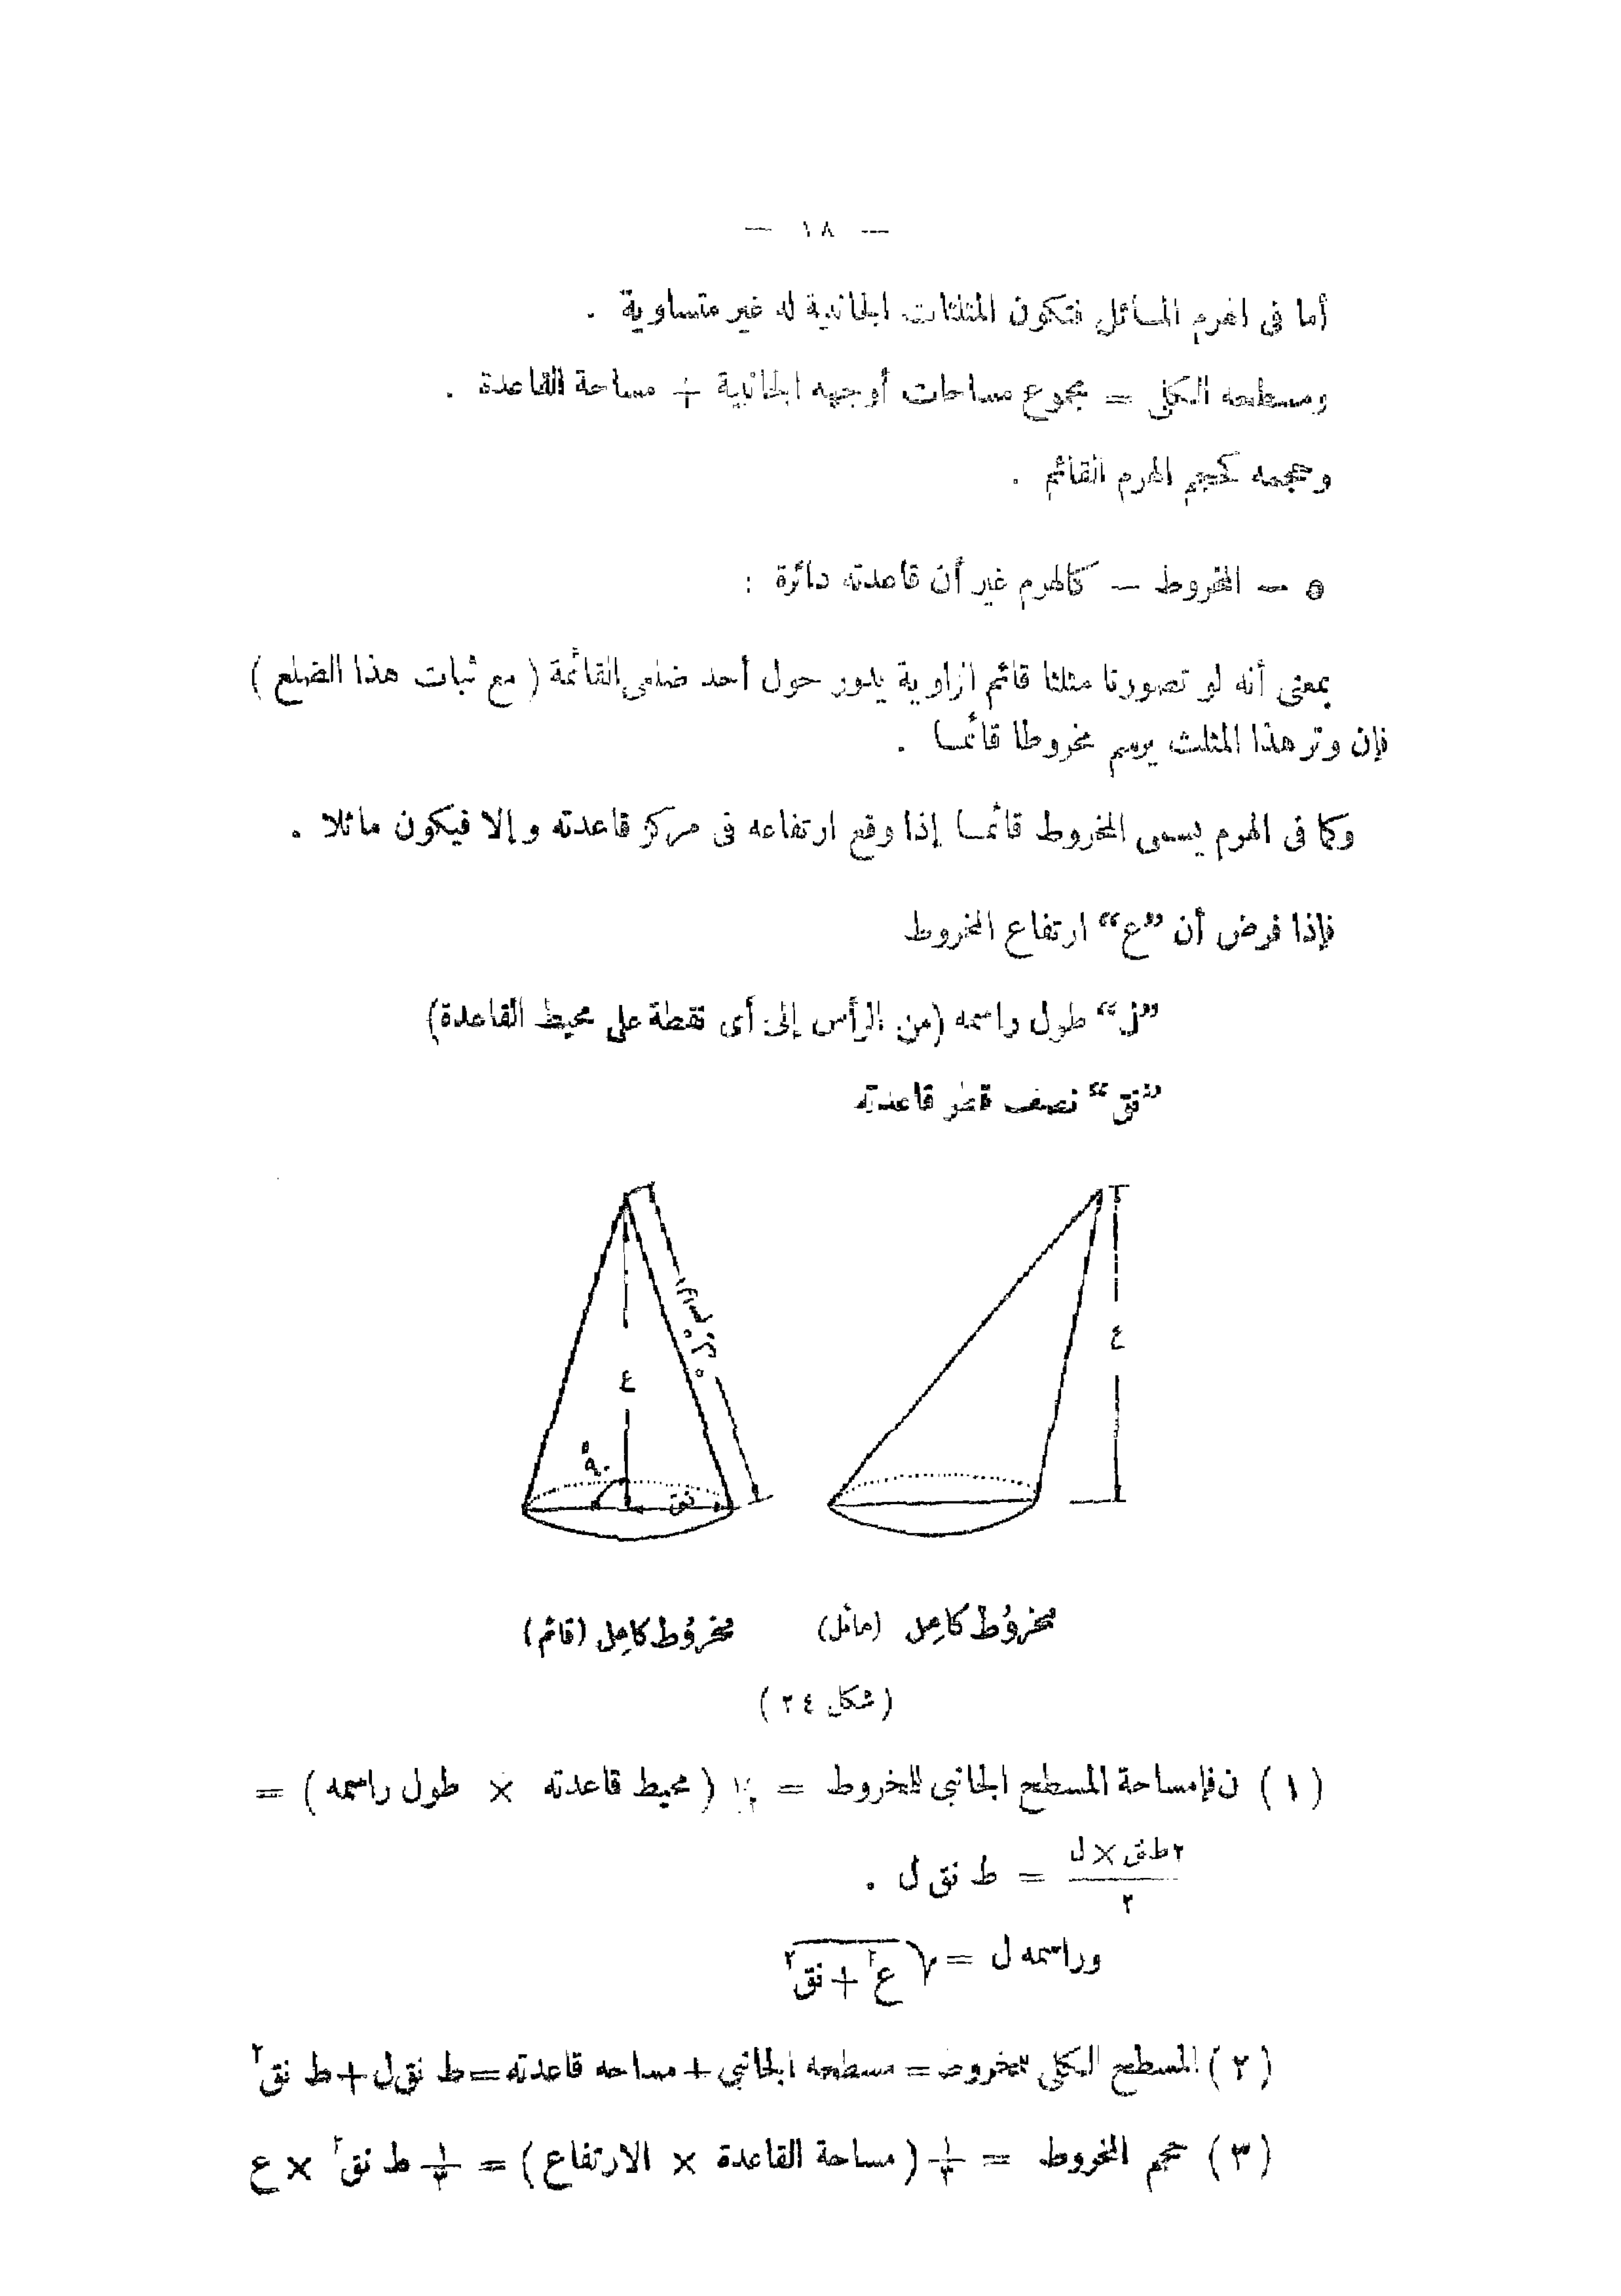 — ١٨ —
أما فى الهرم المائل فتكون المثلثات الجانبية له غير متساوية .
ومسطحه الكلى = مجموع مساحات أوجهه الجانبية + مساحة القاعدة .
وحجمه كحجم الهرم القائم .
٥ — المخروط — كالهرم غير أن قاعدته دائرة :
بمعنى أنه لو تصورنا مثلثا قائم الزاوية يدور حول أحد ضلعى القائمة ( مع ثبات هذا الضلع )
فإن وتر هذا المثلث يرسم مخروطا قائما .
وكما فى الهرم يسمى المخروط قائما إذا وقع ارتفاعه فى مركز قاعدته و إلا فيكون مائلا .
فإذا فرض أن ”ع“ ارتفاع المخروط
”ل“ طول راسمه (من الرأس إلى أى نقطة على محيط القاعدة)
”نق“ نصف قطر قاعدته
ع
ع
٩٠°
نق
مخروط كامل (مائل)
مخروط كامل (قائم)
( شكل ٢٤ )
( ١ ) ن فإمساحة المسطح الجانبى للمخروط = ١/٢ ( محيط قاعدته × طول راسمه ) =
٢ ط نق × ل / ٢ = ط نق ل .
وراسمه ل = √ع٢ + نق٢
( ٢ ) المسطح الكلى للمخروط = مسطحه الجانبي + مساحه قاعدته = ط نق ل + ط نق٢
( ٣ ) حجم المخروط = ١/٣ ( مساحة القاعدة × الارتفاع ) = ١/٣ ط نق٢ × ع